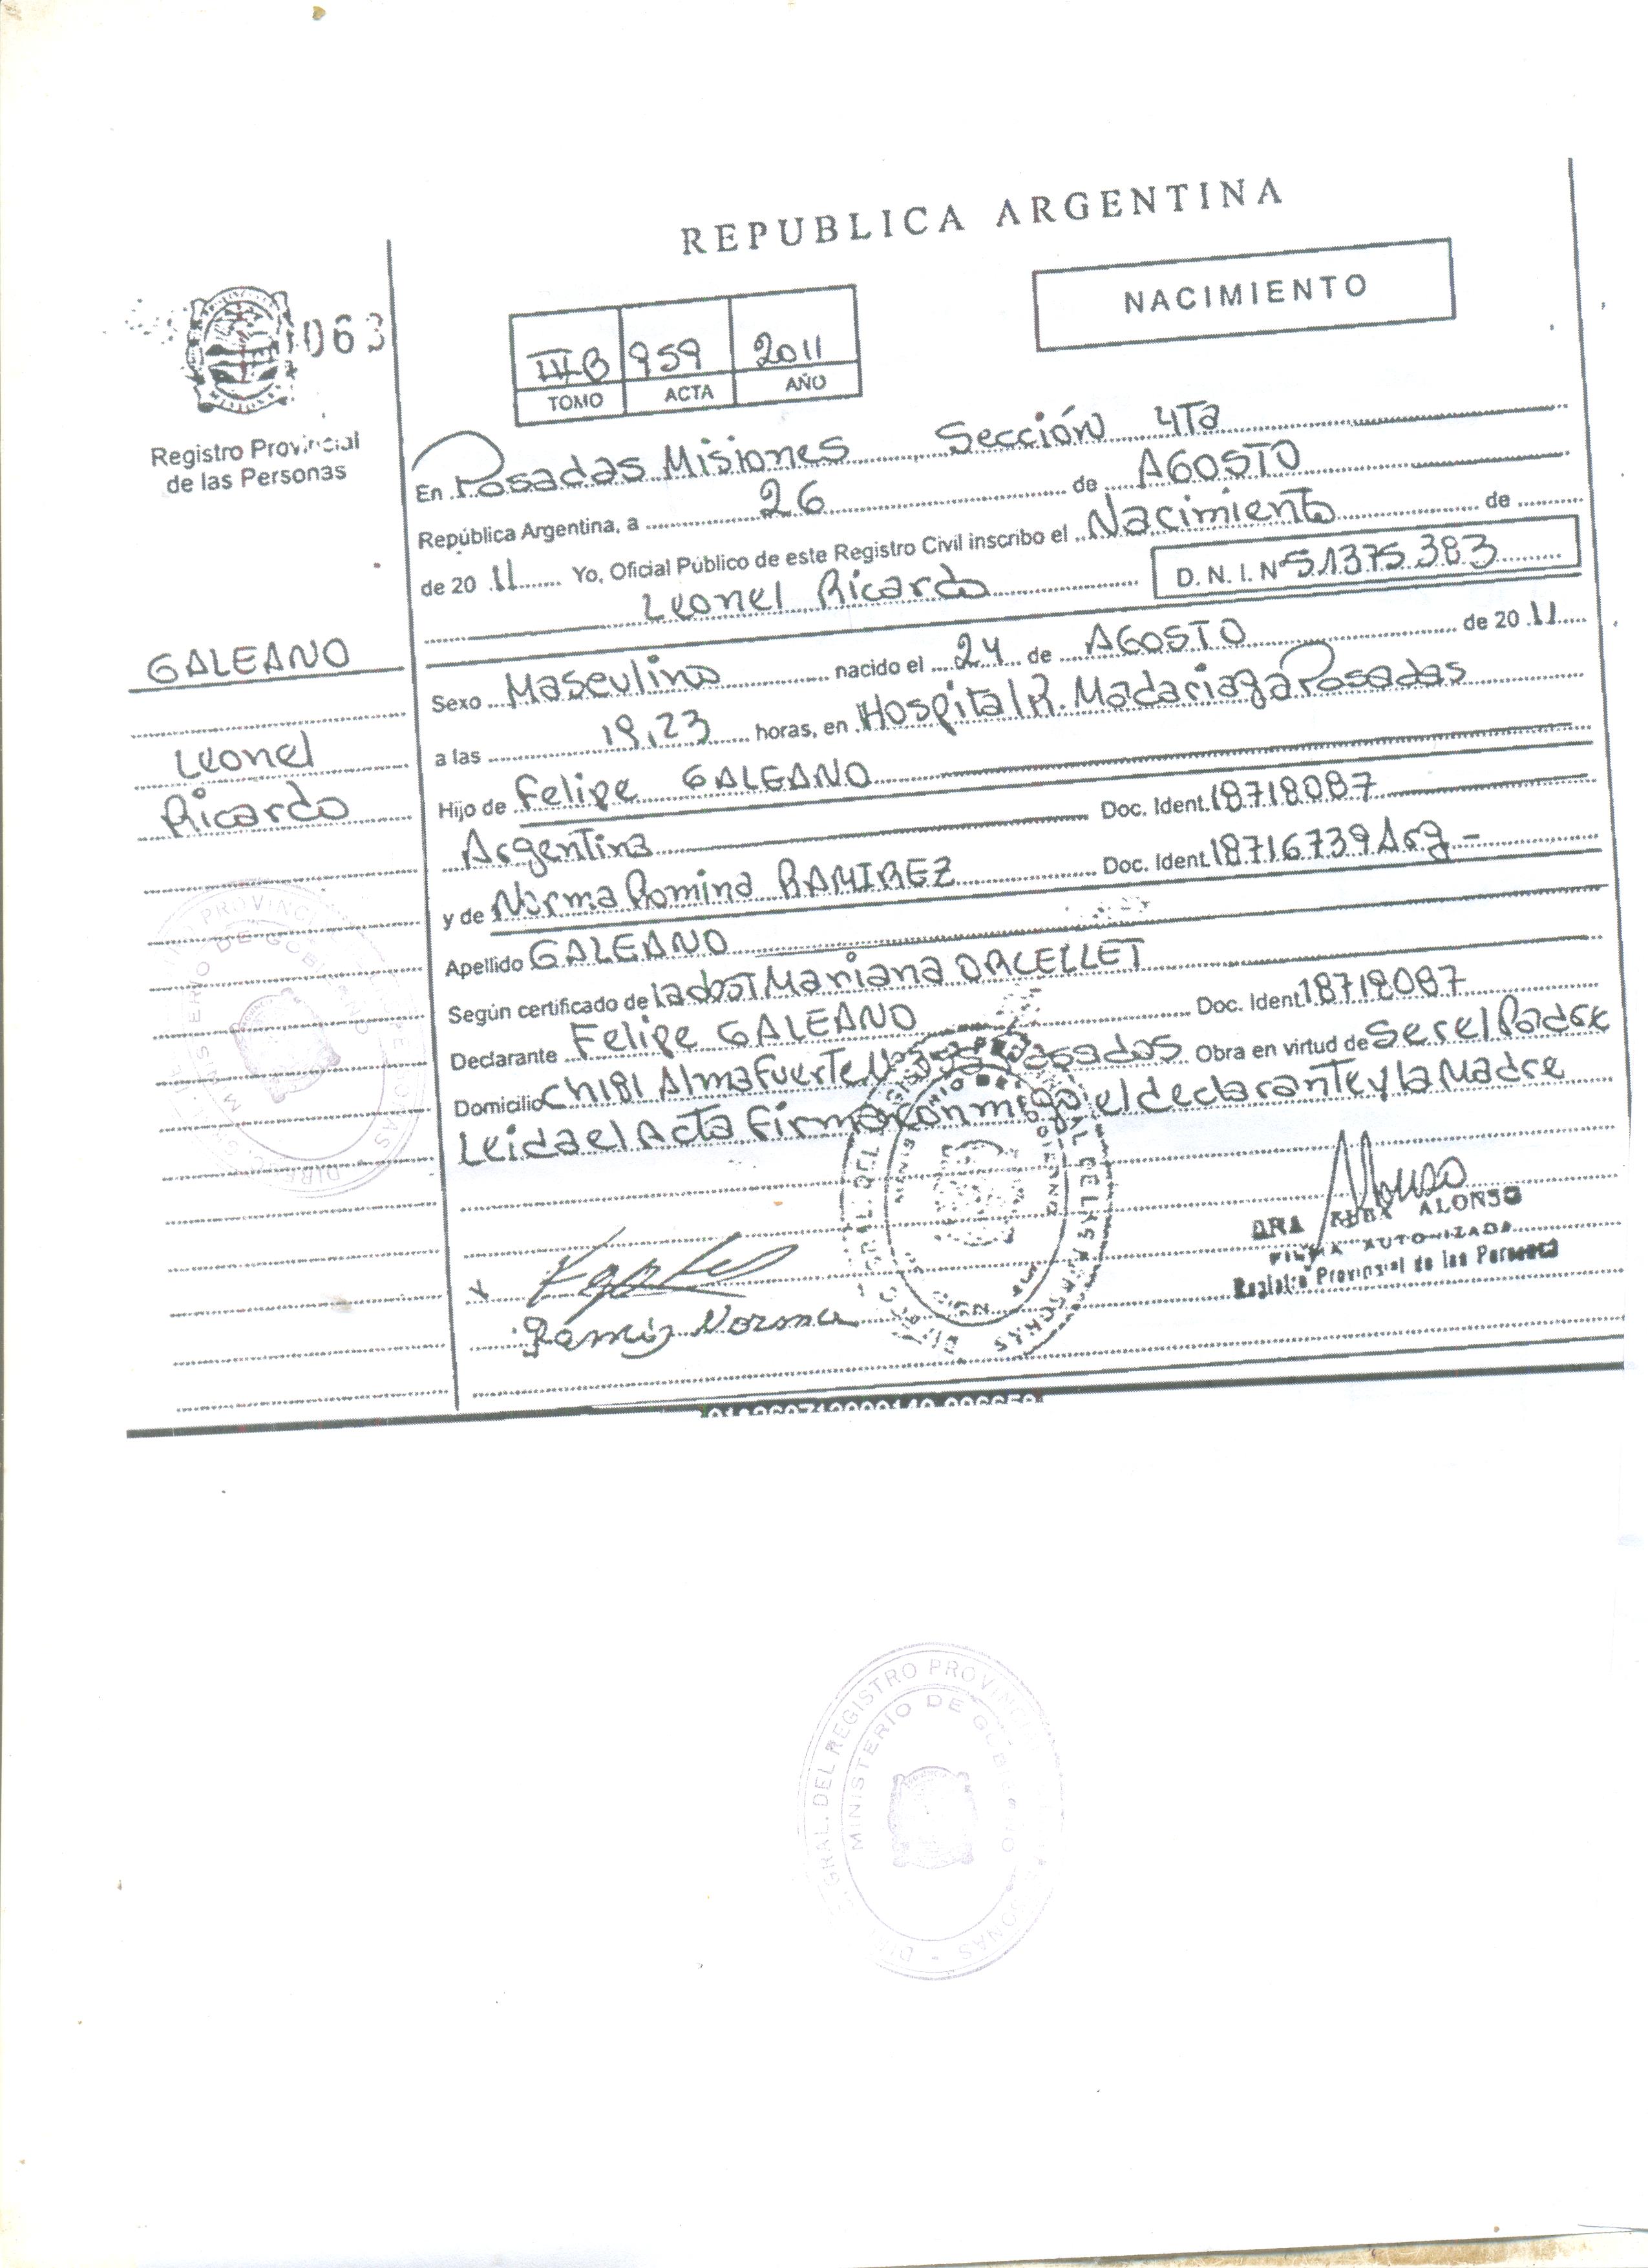 REPUBLICA ARGENTINA
NACIMIENTO
063
Registro Provincial
de las Personas
III B 959 2011
TOMO ACTA AÑO
En Posadas Misiones Sección 4Ta
República Argentina, a 26 de AGOSTO
de 20 11 Yo, Oficial Público de este Registro Civil inscribo el Nacimiento de
Leonel Ricardo D. N. I. Nº 51375.383
GALEANO
Leonel
Ricardo
Sexo Masculino nacido el 24 de AGOSTO de 20 11
a las 19,23 horas, en Hospital R. Madariaga Posadas
Hijo de Felipe GALEANO
Argentina Doc. Ident. 18718087
y de Norma Romina RAMIREZ Doc. Ident. 18716739 Arg -
Apellido GALEANO
Según certificado de la dosT Mariana ORCELLET
Declarante Felipe GALEANO Doc. Ident 18718087
Domicilio CH 181 AlmaFuerte Posadas Obra en virtud de Ser el Padre
Leida el Acta Firma conmigo el declarante y la Madre
Ramirez Norma
DRA ALBA ALONSO
FIRMA AUTORIZADA
Registro Provincial de las Personas
GRAL. DEL REGISTRO PROVINCIAL
MINISTERIO DE GOBIERNO